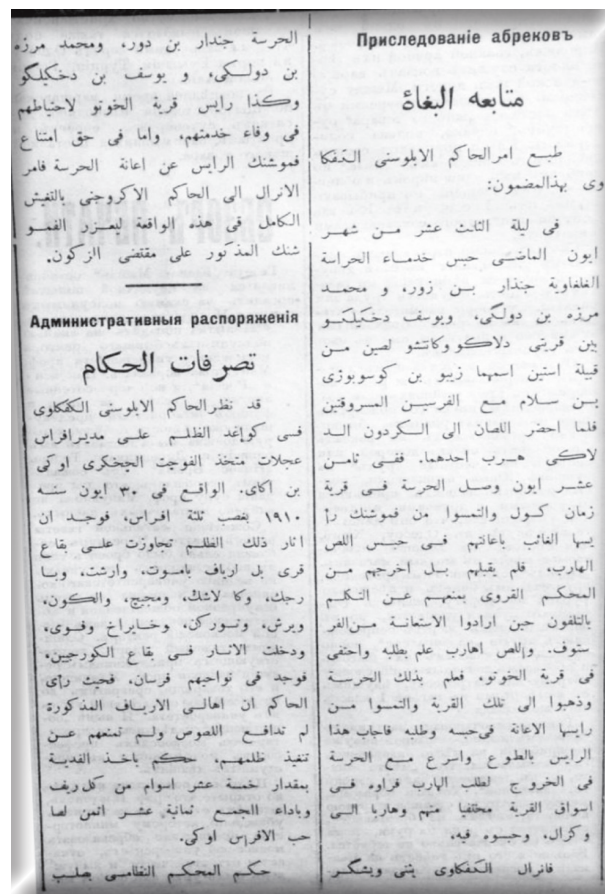 Приследованіе абрековъ
متابعه البغاة
طبع امرالحاكم الابلوستى القفقا
وى بهذالمضمون:
فى ليلة الثالث عشر من شهر
ايون الماضى حبس خدماء الحراسة
الغلغاوية جندار بن زور، و محمد
مرزه بن دولكى، ويوسف دخكيلكو
بين قريتى دلاكو وكانتشو لصين من
قبلة استين اسمهما زيبو بن كوسوبوزى
بن سلام مع الفرسين المسروقتين
فلما احضر اللصان الى الكردون الد
لاكى هرب احدهما. ففى ثامن
عشر ايون وصل الحرسة فى قرية
زمان كول والتمسوا من قموشنك رأ
يسها الغائب باعانتهم فى حبس اللص
الهارب. فلم يقبلهم بل اخرجهم من
المحكم القروى بمنعهم عن التكلم
بالتلفون حين ارادوا الاستعانة من الفر
ستوف. واللص اهارب علم بطلبه واحتفى
فى قرية الخوتو، فعلم بذلك الحرسة
وذهبوا الى تلك القرية والتمسوا من
رايسها الاعانة فى حبسه وطلبه فاجاب هذا
الرايس بالطوع واسرع مع الحرسة
فى الخروج لطلب الهارب فراوه فى
اسواق القرية مختفيا منهم وهاربا الى
وكرال. وحبسوه فيه.
فانرال الكفكاوى يثنى ويشكر
الحرسة جندار بن دور، ومحمد مرزه
بن دولكى، و يوسف بن دخكيلكو
وكذا رايس قرية الخوتو لاحتياطهم
فى وفاء خدمتهم. واما فى حق امتناع
قموشنك الرايس عن اعانة الحرسة فامر
الانرال الى الحاكم الاكروجنى بالتفتش
الكامل فى هذه الواقعة ليعزر القمو
شنك المذكور على مقتضى الزكون.
Административныя распоряженія
تصرفات الحكام
قد نظر الحاكم الابلوستى الكفكاوى
فى كواغد الظلم على مديرافراس
عجلات متخذ الفوجت الجحكرى اوكى
بن اكاى. الواقع فى ٣٠ ايون سنه
١٩١٠ بغصب ثلثة افراس، فوجد ان
اثار ذلك الظلم تجاوزت على بقاع
قرى بل ارياف باموت، وارشت، وبا
رجك، وكا لاشك، ومجيج، والكون،
ويرش، وتوركن، وخايراخ وفوى،
ودخلت الاثار فى بقاع الكورجيين.
فوجد فى نواحيهم فرسان. فحيث رأى
الحاكم ان اهالى الارياف المذكورة
لم تدافع اللصوص ولم تمنعهم عن
تنفيذ ظلمهم. حكم باخذ الفدية
بمقدار خمسة عشر اسوام من كل ريف
وباداء الجمع ثمانية عشر اتمن لصا
حب الافراس اوكى.
حكم المحكم النظامى بصلب